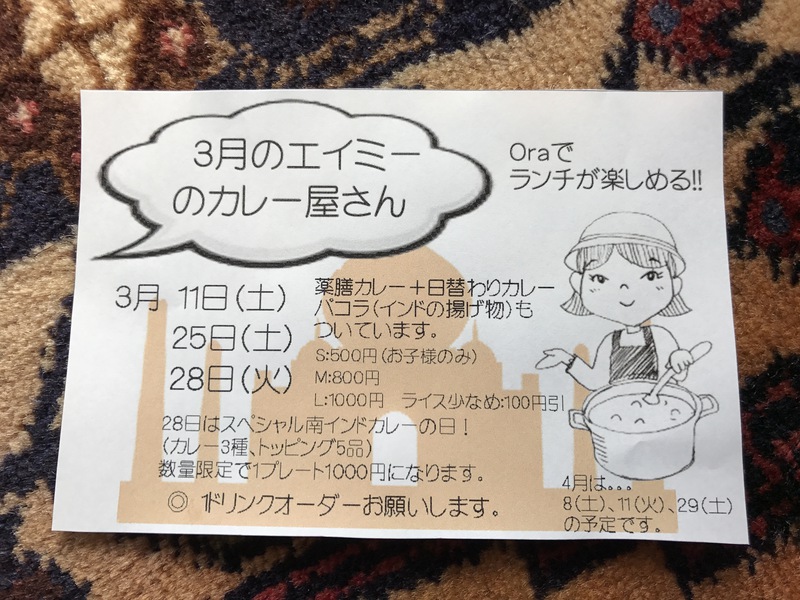 3月のエイミー
のカレー屋さん
Oraで
ランチが楽しめる!!
3月 11日(土)
25日(土)
28日(火)
薬膳カレー+日替わりカレー
パコラ(インドの揚げ物)も
ついています。
S:500円(お子様のみ)
M:800円
L:1000円 ライス少なめ:100円引
28日はスペシャル南インドカレーの日!
(カレー3種、トッピング5品)
数量限定で1プレート1000円になります。
◎ 1ドリンクオーダーお願いします。
4月は。。。
8(土)、11(火)、29(土)
の予定です。